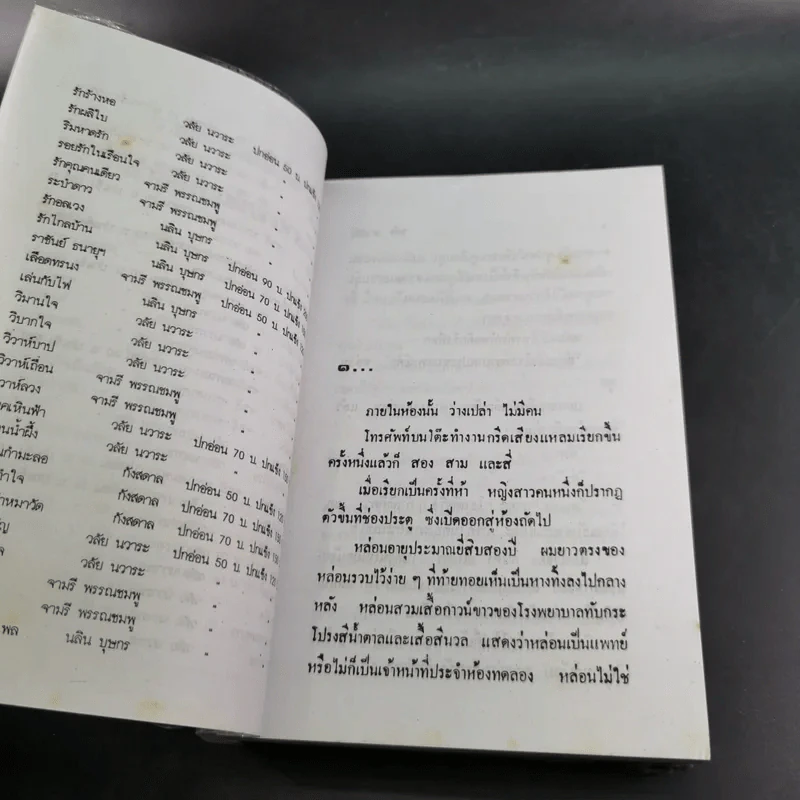 รักร้างหอ
รักผลิใบ วลัย นวาระ ปกอ่อน 50 บ. ปกแข็ง
ริมหาดรัก วลัย นวาระ "
รอยรักในเรือนใจ วลัย นวาระ "
รักคุณคนเดียว วลัย นวาระ "
ระบำดาว จามรี พรรณชมพู "
รักอลเวง จามรี พรรณชมพู "
รักไกลบ้าน นลิน บุษกร "
ราชันย์ ธนายุฯ นลิน บุษกร ปกอ่อน 90 บ. ปกแข็ง
เลือดทรนง นลิน บุษกร ปกอ่อน 70 บ. ปกแข็ง
เล่นกับไฟ จามรี พรรณชมพู ปกอ่อน 50 บ. ปกแข็ง
วิมานใจ นลิน บุษกร "
วิบากใจ วลัย นวาระ "
วิวาห์บาป วลัย นวาระ "
วิวาห์เถื่อน วลัย นวาระ "
วาห์ลวง จามรี พรรณชมพู "
คเหินฟ้า จามรี พรรณชมพู "
นน้ำผึ้ง วลัย นวาระ ปกอ่อน 70 บ. ปกแข็ง
นกำมะลอ วลัย นวาระ "
ทำใจ กังสดาล ปกอ่อน 50 บ. ปกแข็ง 120
าหมาวัด กังสดาล ปกอ่อน 70 บ. ปกแข็ง
ัญ กังสดาล ปกอ่อน 70 บ. ปกแข็ง
ล วลัย นวาระ ปกอ่อน 50 บ. ปกแข็ง 120
วลัย นวาระ "
จามรี พรรณชมพู "
จามรี พรรณชมพู "
พล นลิน บุษกร "
๑...
ภายในห้องนั้น ว่างเปล่า ไม่มีคน
โทรศัพท์บนโต๊ะทำงานกรีดเสียงแหลมเรียกขึ้น
ครั้งหนึ่งแล้วก็ สอง สาม และสี่
เมื่อเรียกเป็นครั้งที่ห้า หญิงสาวคนหนึ่งก็ปรากฏ
ตัวขึ้นที่ช่องประตู ซึ่งเปิดออกสู่ห้องถัดไป
หล่อนอายุประมาณยี่สิบสองปี ผมยาวตรงของ
หล่อนรวบไว้ง่าย ๆ ที่ท้ายทอยเห็นเป็นหางทิ้งลงไปกลาง
หลัง หล่อนสวมเสื้อกาวน์ขาวของโรงพยาบาลทับกระ
โปรงสีน้ำตาลและเสื้อสีนวล แสดงว่าหล่อนเป็นแพทย์
หรือไม่ก็เป็นเจ้าหน้าที่ประจำห้องทดลอง หล่อนไม่ใช่